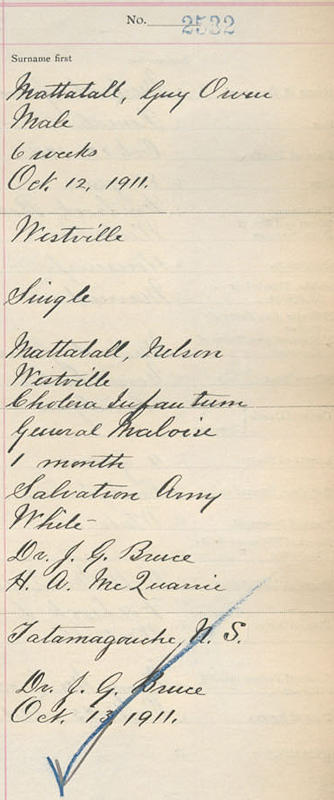 No. 2532
Surname first
Mattatall, Guy Owen
Male
6 weeks
Oct. 12, 1911.
Westville
Single
Mattatall, Nelson
Westville
Cholera Infantum
General Malaise
1 month
Salvation Army
White
Dr. J. G. Bruce
H. A. McQuarrie
Tatamagouche, N. S.
Dr. J. G. Bruce
Oct. 13, 1911.